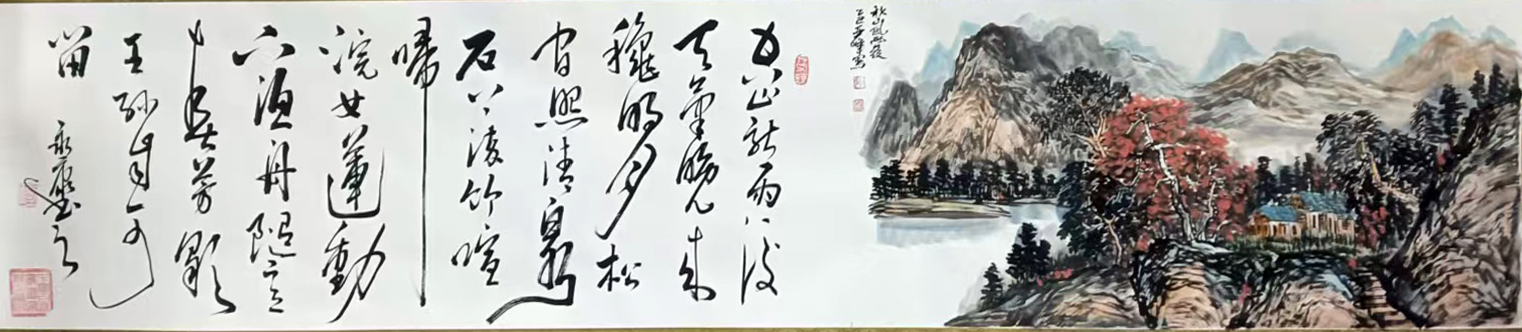 秋山
乙巳
空山新雨後
天氣晚来
穐明月松
間照清泉
石上流竹喧
歸
浣女蓮動
下漁舟隨意
春芳歇
王孫自可
留
永